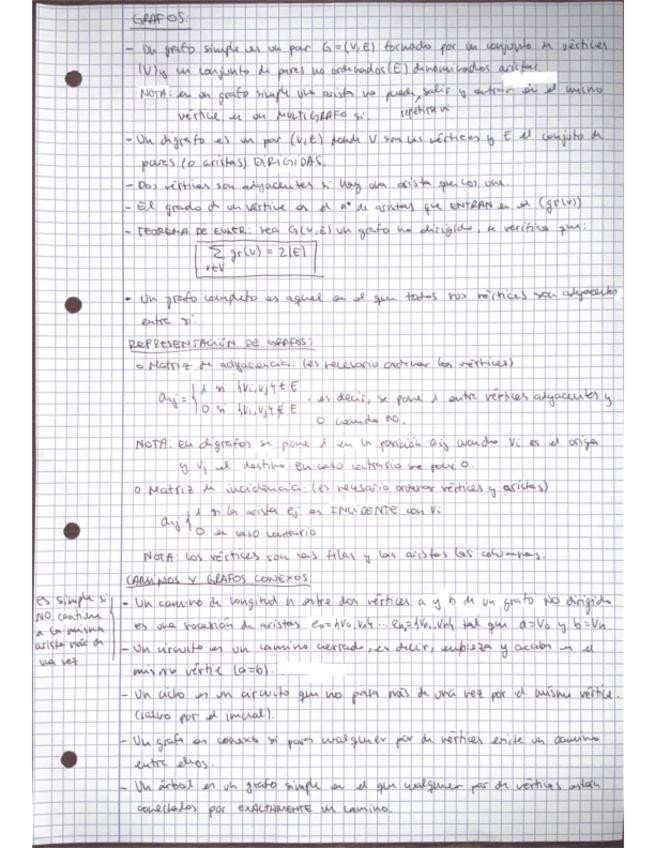 GRAFOS:
- Un grafo simple es un par G=(V,E) formado por un conjunto de vértices
(V) y un conjunto de pares no ordenados (E) denominados aristas.
NOTA: en un grafo simple una arista no puede salir y entrar en el mismo
repetirse ni
vértice en un MULTIGRAFO si.
- Un digrafo es un par (V,E) donde V son los vértices y E el conjunto de
pares (o aristas) DIRIGIDAS.
- Dos vértices son adyacentes si hay una arista que los une.
- El grado de un vértice es el nº de aristas que ENTRAN en el (gr(v))
- TEOREMA DE EULER: sea G(V,E) un grafo no dirigido, se verifica que:
∑ gr(v) = 2|E|
v∈V
- Un grafo completo es aquel en el que todos sus vértices son adyacentes
entre si
REPRESENTACIÓN DE GRAFOS:
o Matriz de adyacencia: (es necesario ordenar los vértices)
aij = { 1 si {vi,vj} ∈ E
0 si {vi,vj} ∉ E , es decir, se pone 1 entre vértices adyacentes y
0 cuando no.
NOTA: En digrafos se pone 1 en la posición aij cuando vi es el origen
y vj el destino. En caso contrario se pone 0.
o Matriz de incidencia: (es necesario ordenar vértices y aristas)
aij { 1 si la arista ej es INCIDENTE con vi
0 en caso contrario
NOTA: los vértices son las filas y las aristas las columnas.
CAMINOS Y GRAFOS CONEXOS:
es simple si
NO contiene
a la misma
arista más de
una vez
- Un camino de longitud n entre dos vértices a y b de un grafo NO dirigido
es una sucesión de aristas tal que a=V0 y b=Vn
- Un circuito es un camino cerrado, es decir, empieza y acaba en el
mismo vértice (a=b).
- Un ciclo es un circuito que no pasa más de una vez por el mismo vértice
(salvo por el inicial).
- Un grafo es conexo si para cualquier par de vértices existe un camino
entre ellos.
- Un árbol es un grafo simple en el que cualquier par de vértices están
conectados por EXACTAMENTE un camino.